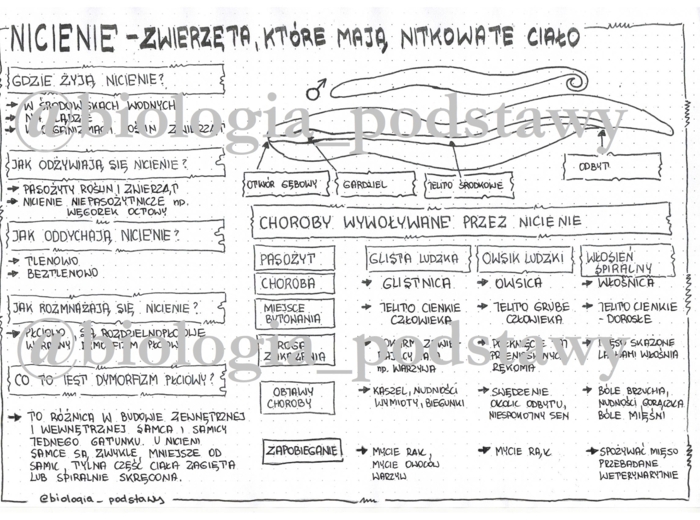 NICIENIE - ZWIERZĘTA, KTÓRE MAJĄ NITKOWATE CIAŁO
GDZIE ŻYJĄ NICIENIE?
→ W ŚRODOWISKACH WODNYCH
→ NA LĄDZIE
→ W ORGANIZMACH ROŚLIN I ZWIERZĄT
@biologia_podstawy
JAK ODŻYWIAJĄ SIĘ NICIENIE?
→ PASOŻYTY ROŚLIN I ZWIERZĄT
→ NICIENIE NIEPASOŻYTNICZE np.
WĘGOREK OCTOWY
JAK ODDYCHAJĄ NICIENIE?
→ TLENOWO
→ BEZTLENOWO
JAK ROZMNAŻAJĄ SIĘ NICIENIE?
→ PŁCIOWO, SĄ ROZDZIELNOPŁCIOWE
WYRAŹNY DYMORFIZM PŁCIOWY
CO TO JEST DYMORFIZM PŁCIOWY?
→ TO RÓŻNICA W BUDOWIE ZEWNĘTRZNEJ
I WEWNĘTRZNEJ SAMCA I SAMICY
JEDNEGO GATUNKU. U NICIENI
SAMCE SĄ, ZWYKLE, MNIEJSZE OD
SAMIC, TYLNA CZĘŚĆ CIAŁA ZAGIĘTA
LUB SPIRALNIE SKRĘCONA.
@biologia_podstawy
♂
OTWÓR GĘBOWY
GARDZIEL
JELITO ŚRODKOWE
ODBYT
CHOROBY WYWOŁYWANE PRZEZ NICIENIE
PASOŻYT
GLISTA LUDZKA
OWSIK LUDZKI
WŁOSIEŃ
SPIRALNY
CHOROBA
→ GLISTNICA
→ OWSICA
→ WŁOŚNICA
MIEJSCE
BYTOWANIA
→ JELITO CIENKIE
CZŁOWIEKA
→ JELITO GRUBE
CZŁOWIEKA
→ JELITO CIENKIE
- DOROSŁE
DROGA
ZAKAŻENIA
np. WARZYWA
RĘKOMA
→ MIĘSO SKAŻONE
LARWAMI WŁOŚNIA
@biologia_podstawy
OBJAWY
CHOROBY
→ KASZEL, NUDNOŚCI
WYMIOTY, BIEGUNKI
→ SWĘDZENIE
OKOLIC ODBYTU,
NIESPOKOJNY SEN
→ BÓLE BRZUCHA,
NUDNOŚCI GORĄCZKA
BÓLE MIĘŚNI
ZAPOBIEGANIE
→ MYCIE RĄK,
MYCIE OWOCÓW
WARZYW
→ MYCIE RĄK
→ SPOŻYWAĆ MIĘSO
PRZEBADANE
WETERYNARYJNIE